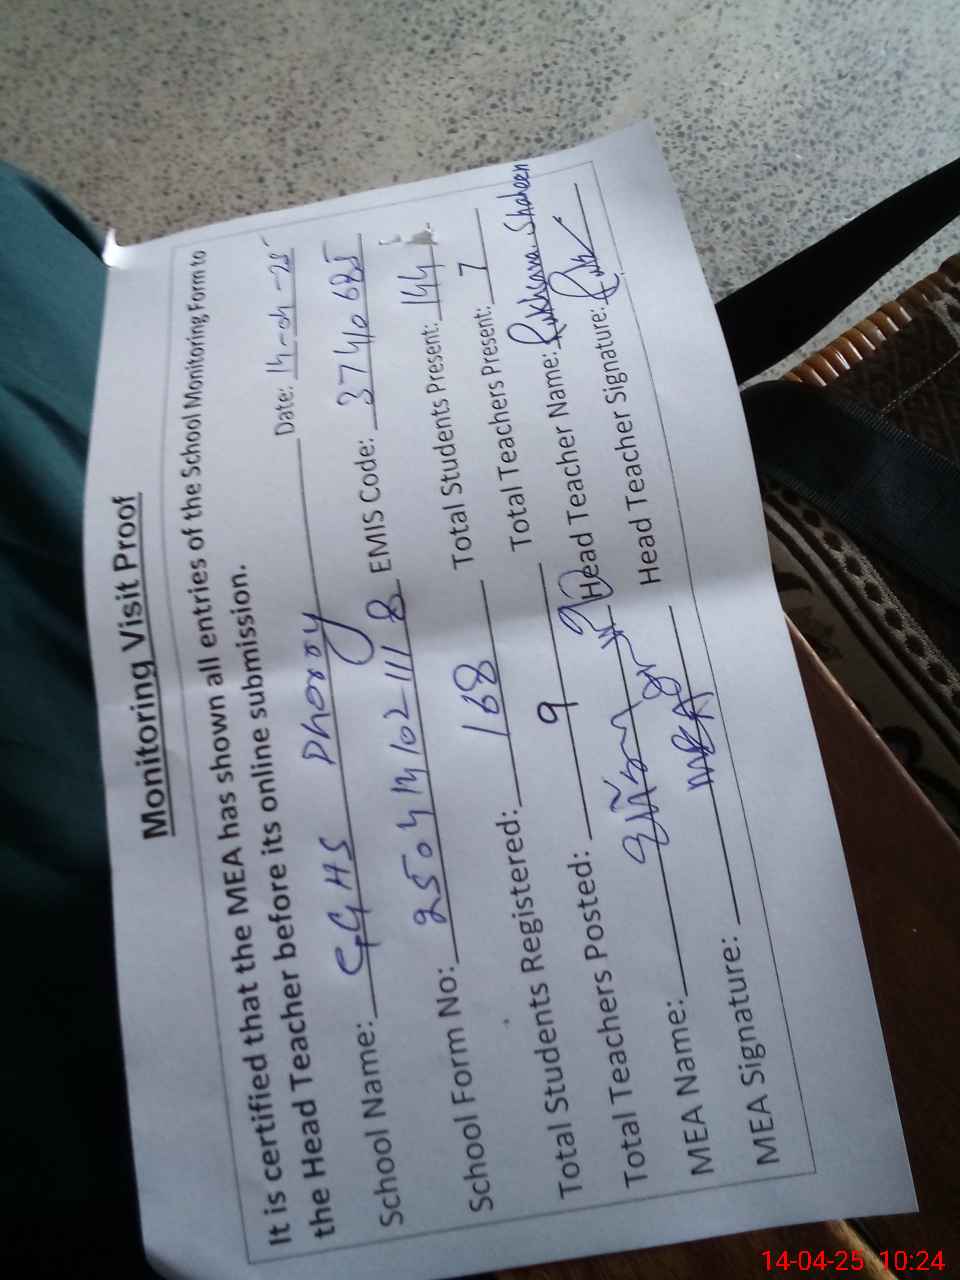 Monitoring Visit Proof
It is certified that the MEA has shown all entries of the School Monitoring Form to
the Head Teacher before its online submission.
School Name: GGHS Dhoroy Date: 14-04-25
School Form No: 2504141021118 EMIS Code: 37440685
Total Students Registered: 168 Total Students Present: 144
Total Teachers Posted: 9 Total Teachers Present: 7
MEA Name: Head Teacher Name: Rukhsana Shaheen
MEA Signature: Head Teacher Signature:
14-04-25 10:24